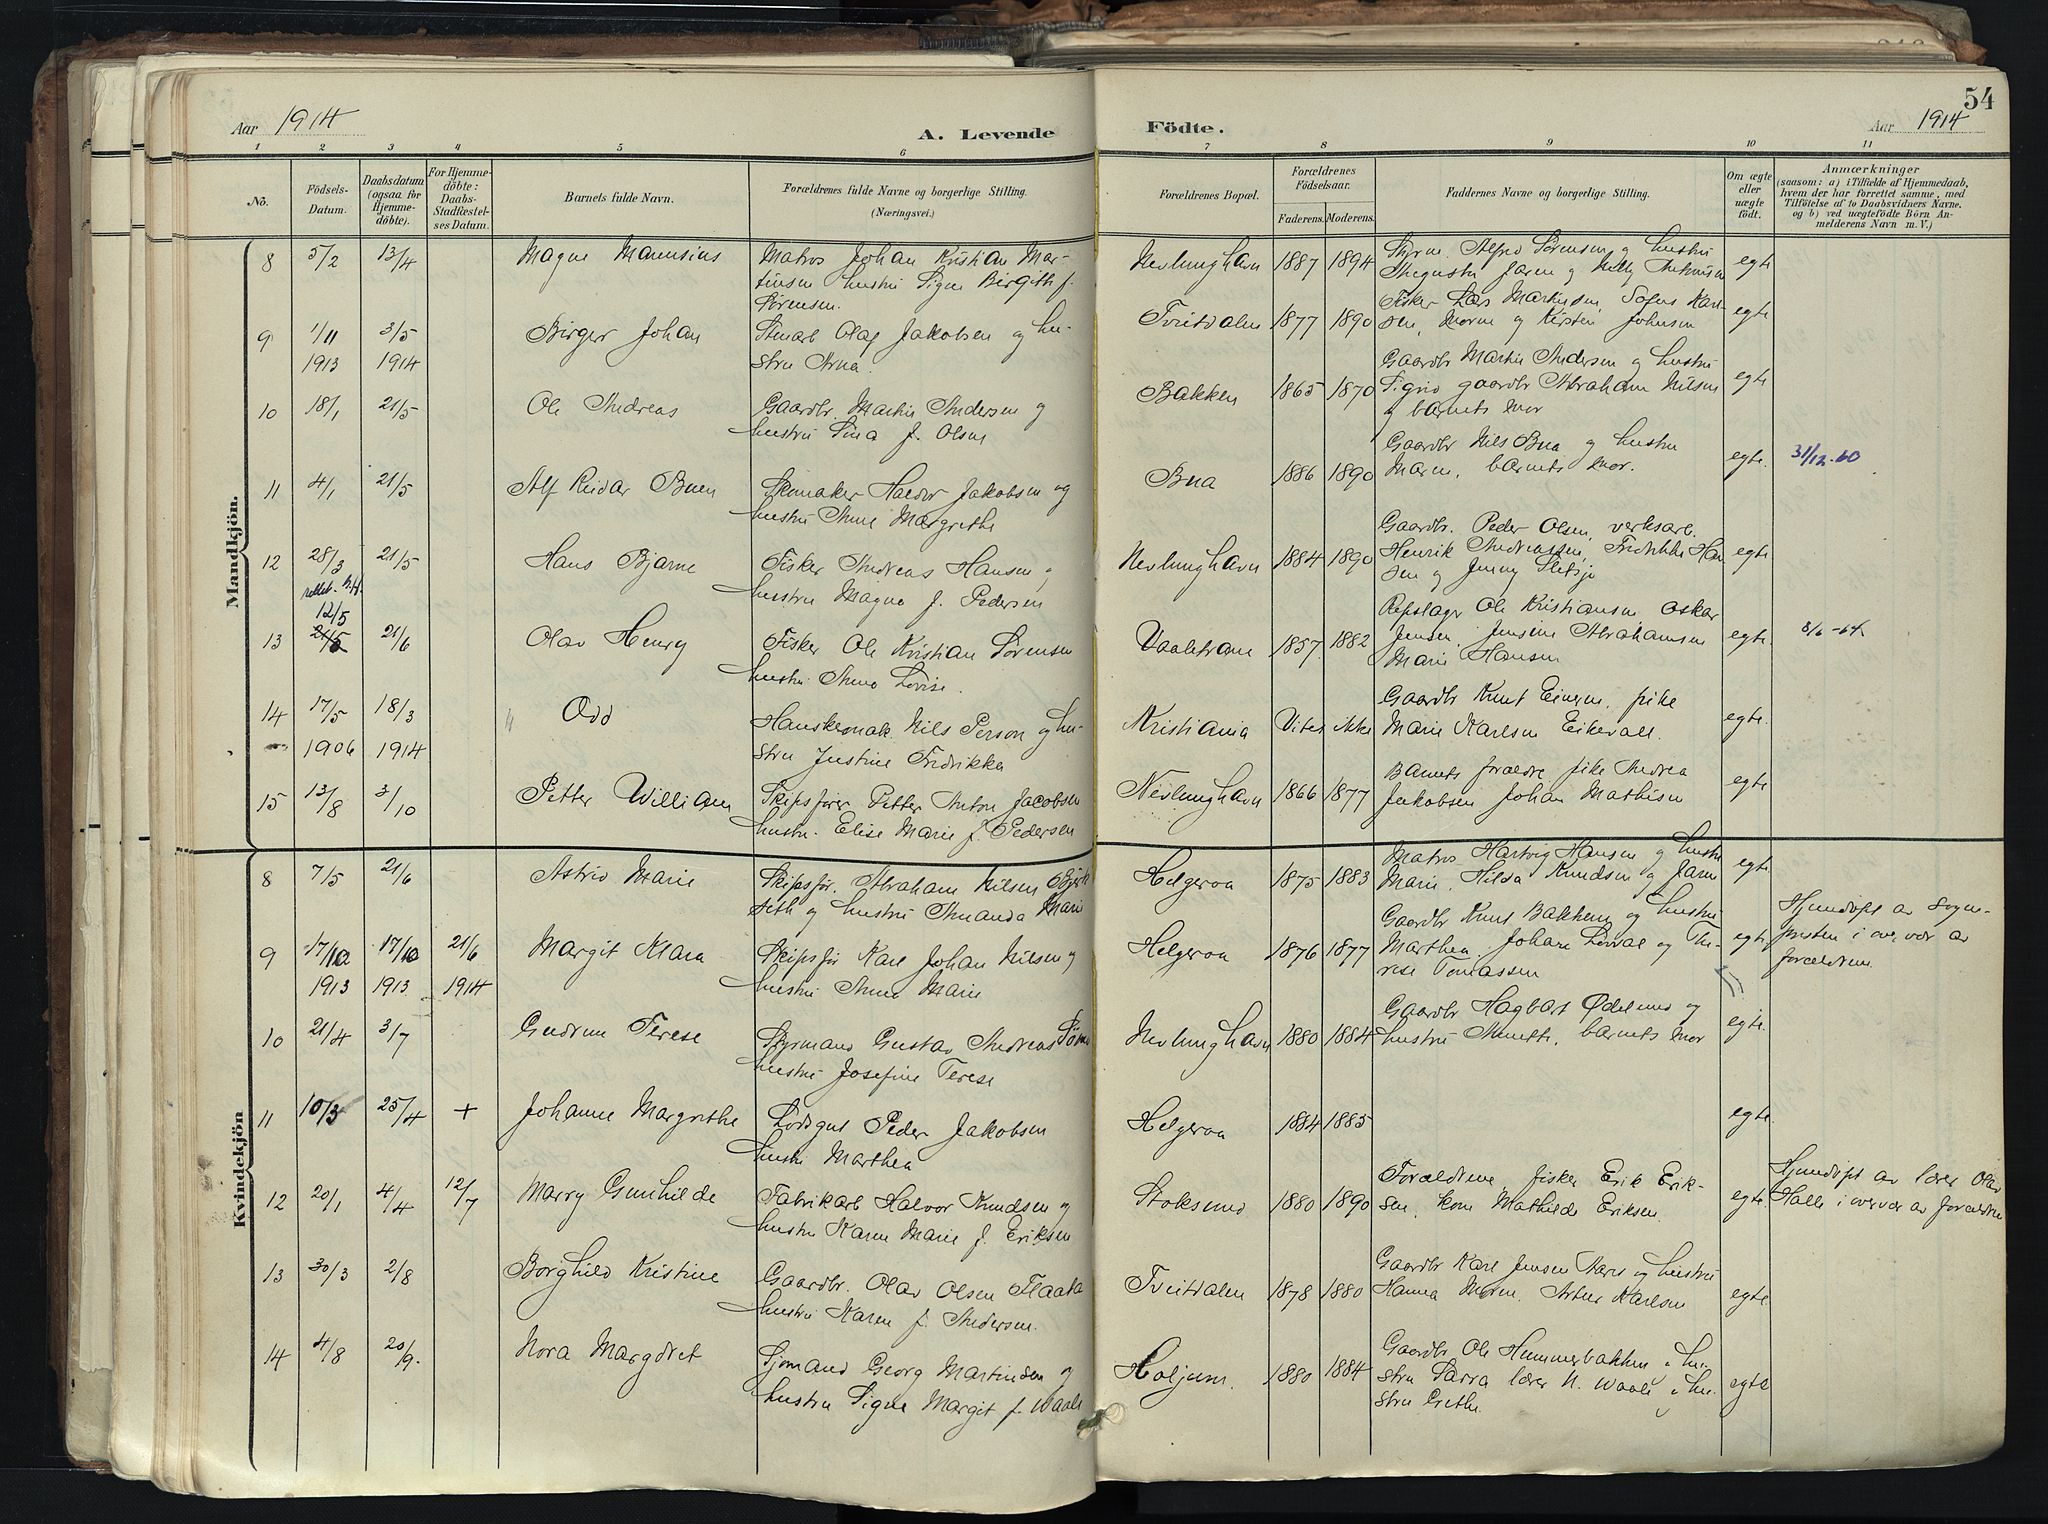 54
Aar 1914 A. Levende Födte. Aar 1914
1 2 3 4 5 6 7 8 9 10 11
No. Födsels-Datum. Daabsdatum (ogsaa for Hjemmedöbte). For Hjemmedöbte: Daabs-Stadfæstelses Datum. Barnets fulde Navn. Forældrenes fulde Navne og borgerlige Stilling. (Næringsvei.) Forældrenes Bopæl. Forældrenes Födselsaar. Faderens. Moderens. Faddernes Navne og borgerlige Stilling. Om ægte eller uægte födt. Anmærkninger (saasom: a) i Tilfælde af Hjemmedaab, hvem der har forrettet samme, med Tilföielse af to Daabsvidners Navne, og b) ved uægtefödte Börn Anmelderens Navn m. V.)
Mandkjön.
8 5/2 13/4 Magne Marensius Matros Johan Kristian Mar-
tinsen hustru Signe Birgith f.
Sørensen. Nevlunghavn 1887 1894 Styrm. Alfred Sørensen og hustru
Augusta Jaren og Nelly Antonisen egte
9 1/11 3/5 Birger Johan Stuart Olaf Jakobsen og hu-
1913 1914 stru Anna. Tveitdalen 1877 1890 Fisker Lars Martinsen, Sofus Karl-
sen, Moren og Kirsten Johnsen egte
10 18/1 21/5 Ole Andreas Gaardbr. Martin Andersen og
hustru Lina f. Olsen Bakken 1865 1870 Gaardbr Martin Andersen og hustru
Sigrid gaardbr Abraham Nilsen
og barnets mor egte
11 4/1 21/5 Alf Reidar Buen Skomaker Haldor Jakobsen og
hustru Anne Margrethe Bua 1886 1890 Gaardbr Nils Bua og hustru
Maren, barnets mor. egte. 31/12-60
12 28/3 21/5 Hans Bjarne Fisker Andreas Hansen og
hustru Magna f. Pedersen Nevlunghavn 1884 1890 Gaardbr. Peder Olsen, verksarb.
Henrik Andreassen, Fredrikke Han
sen og Jenny Sletsjø egte
rettet
12/5
13 21/5 21/6 Olav Henry Fisker Ole Kristian Sørensen
hustru Anna Lovise. Vaaletrane 1857 1882 Repslager Ole Kristiansen Oskar
Jensen, Jensine Abrahamsen
Marie Hansen egte. 8/6-64
14 17/5 18/3 Odd Hanskemak. Nils Person og hu-
1906 1914 stru Justine Fredrikke Kristiania Vites ikke Gaardbr Knut Einersen, pike
Marie Karlsen Eikevall. egte.
15 13/8 3/10 Petter William Skipsfører Petter Anton Jacobsen
hustru. Elise Marie f. Pedersen Nevlunghavn 1866 1877 Barnets forældre pike Andrea
Jakobsen Johan Mathisen egte
Kvindekjön
8 7/5 21/6 Astrid Marie Skipsfør. Abraham Nilsen Bjørk
seth og hustru Amanda Marie Helgeroa 1875 1883 Matros Hartvig Hansen og hustru
Marie, Hilda Knudsen og Jaren egte
9 17/10 17/10 21/6 Margit Klara Skipsfør Karl Johan Nilsen og
1913 1913 1914 hustru Anna Marie Helgeroa 1876 1877 Gaardbr Knut Bakken og hustru
Marthea, Johan Lorval og The-
rese Tomassen egte Hjemdøpt av Sogne-
presten i overvær av
forældrene.
10 21/4 3/7 Gudrun Terese Styrmand Gustav Andreas Sørn
hustru Josefine Terese Nevlunghavn 1880 1884 Gaardbr Hagbart Ødelund og
hustru Anette, barnets mor egte.
11 10/3 25/4 + Johanne Margrethe Lodsgut Peder Jakobsen
hustru Marthea Helgeroa 1884 1885 egte
12 20/1 4/4 12/7 Marry Gunhilde Fabrikarb Halvor Knudsen og
hustru Karen Marie f. Eriksen Stoksund 1880 1890 Forældrene, fisker Erik Erik-
sen, kone Mathilde Eriksen. egte. Hjemdøpt av lærer Olav
Halle i overvær av forældre
13 30/3 2/8 Borghild Kristine Gaardbr. Olav Olsen Flaata
hustru Karen f. Andersen. Tveitdalen 1878 1880 Gaardbr Karl Jensen Aares og hustru
Hanna Moren. Artur Karlsen egte
14 4/8 20/9. Nora Margdret Sjømand Georg Martinsen og
hustru Signe Margit f. Waale Holjum. 1880 1884 Gaardbr Ole Hummerbakken og hu-
stru Sarra lærer N. Waale og hu-
stru Grethe. egte